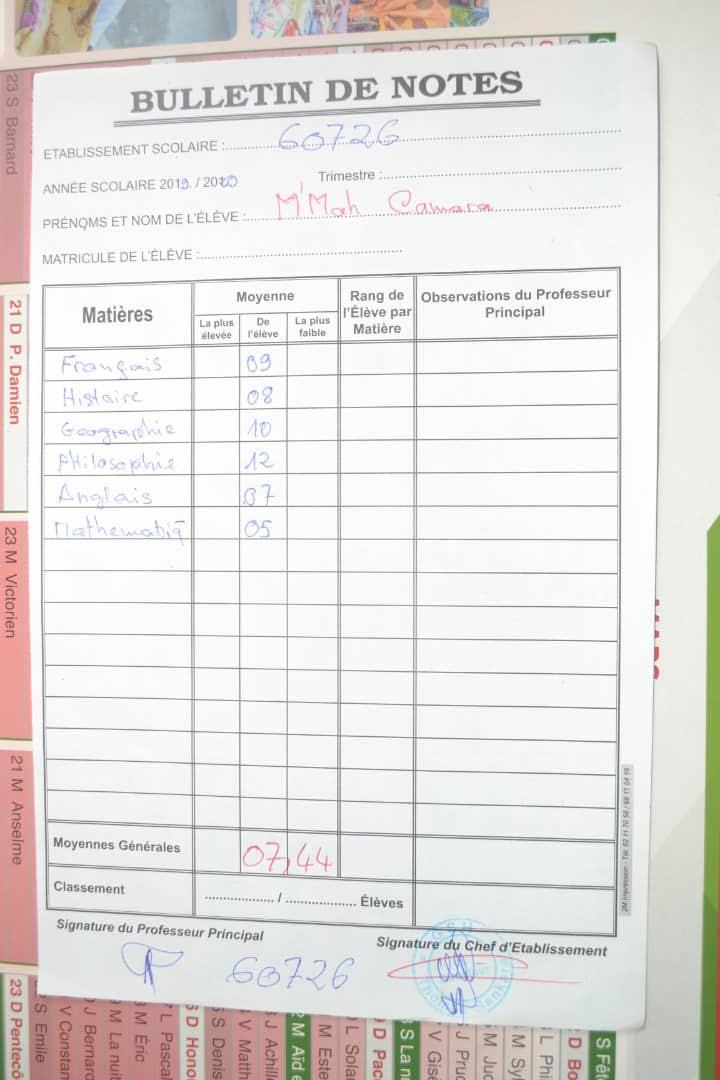 BULLETIN DE NOTES
ETABLISSEMENT SCOLAIRE : 60726
ANNÉE SCOLAIRE 2019. / 2020 Trimestre :
PRÉNOMS ET NOM DE L'ÉLÈVE : M'Mah Camara
MATRICULE DE L'ÉLÈVE :
Matières
Moyenne
La plus élevée
De l'élève
La plus faible
Rang de l'Élève par Matière
Observations du Professeur Principal
Français 09
Histoire 08
Geographie 10
PHilosophie 12
Anglais 07
Mathematiq 05
Moyennes Générales 07,44
Classement / Élèves
Signature du Professeur Principal
Signature du Chef d'Etablissement
60726
23 S Barnard
21 D P. Damien
23 M Victorien
21 M Anselme
23 D Pentecô
S Emile
V Constan
J Bernard
M La nuit
M Éric
L Pascal
D Hono
S Denis
V Matth
J Achille
M Aïd e
M Este
L Sola
D Pac
S La n
V Gise
J Pru
M Jud
M Syl
L Phi
D Bo
S Fêt